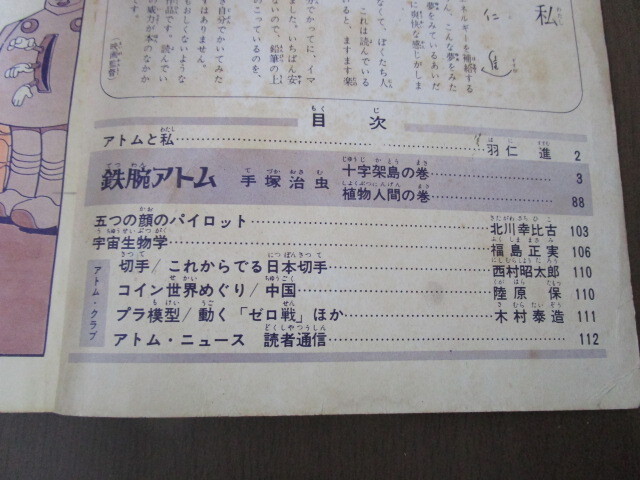 私
わたし
仁
進
ネルギーを補給する
ん。こんな夢をみた
夢をみているあいだ
に爽快な感じがしま
なくて、ぼくたち人
これは読んでいる
いると、ますます楽
分でかってに、イマ
ました。いちばん安
ないので、鉛筆の上
こっているのを、
き自分でかいてみた
はありません。
もおしくないような
作品です。読んでい
威力が本のなかか
(映画監督)
もくじ
目次
アトムと私 羽仁 進 2
鉄腕アトム 手塚治虫 十字架島の巻 3
植物人間の巻 88
五つの顔のパイロット 北川幸比古 103
宇宙生物学 福島正実 106
アトム・クラブ
切手/これからでる日本切手 西村昭太郎 110
コイン世界めぐり/中国 陸原 保 110
プラ模型/動く「ゼロ戦」ほか 木村泰造 111
アトム・ニュース 読者通信 112